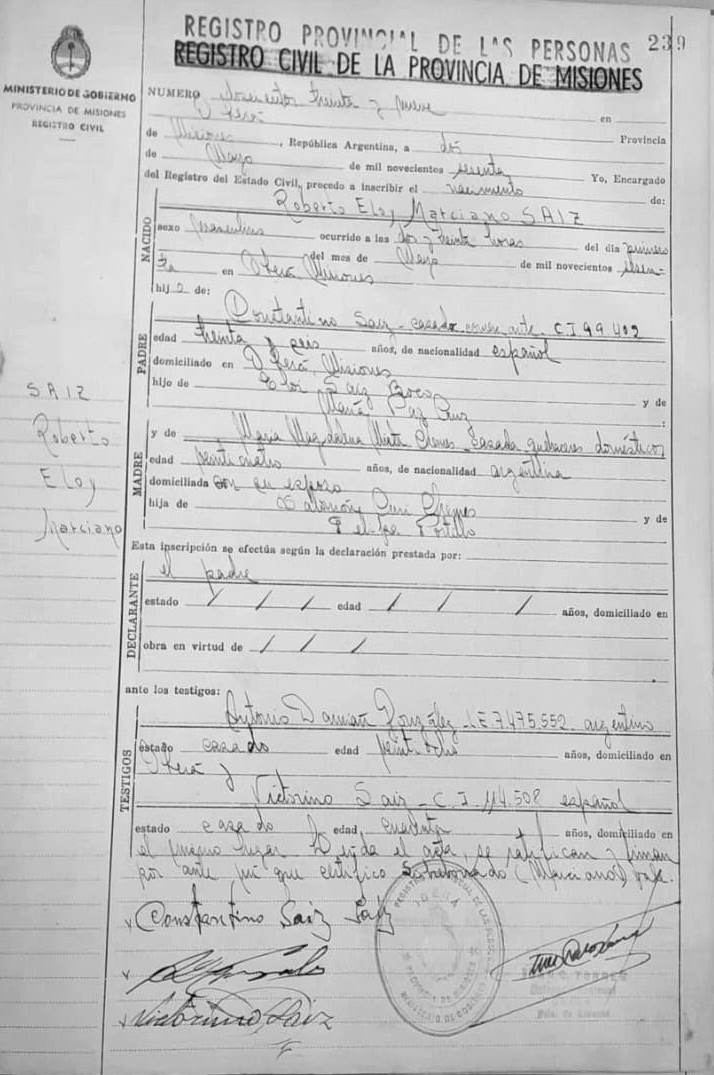 REGISTRO PROVINCIAL DE LAS PERSONAS 239
REGISTRO CIVIL DE LA PROVINCIA DE MISIONES
MINISTERIO DE GOBIERNO
PROVINCIA DE MISIONES
REGISTRO CIVIL
NUMERO doscientos treinta y nueve en
Oberá
de Misiones, República Argentina, a dos Provincia
de Mayo de mil novecientos sesenta Yo, Encargado
del Registro del Estado Civil, procedo a inscribir el nacimiento de:
Roberto Eloy Marciano SAIZ
NACIDO
sexo masculino ocurrido a las dos y treinta horas del día primero
del mes de Mayo de mil novecientos sesen-
ta en Oberá Misiones
hijo de:
PADRE
Constantino Saiz - casado comerciante - C.I 99.402
edad treinta y seis años, de nacionalidad español
domiciliado en Oberá, Misiones
hijo de Eloi Saiz y de
María Paz Cruz
SAIZ
Roberto
Eloy
Marciano
MADRE
y de María Magdalena casada quehaceres domésticos
edad veinticuatro años, de nacionalidad argentina
domiciliada con su esposo
hija de y de
Portillo
Esta inscripción se efectúa según la declaración prestada por:
el padre
DECLARANTE
estado / / / edad / / / años, domiciliado en
obra en virtud de / / /
ante los testigos:
TESTIGOS
Antonio Damián González L.E. 7.475.552 argentino
estado casado edad veintiocho años, domiciliado en
Oberá y
Victorino Saiz - C.I. 114.508 español
estado casado edad cuarenta años, domiciliado en
el mismo lugar Leída el acta, se ratifican y firman
por ante mí que certifico Sobreborrado (Marciano) vale.
Constantino Saiz Paz
Victorino Saiz